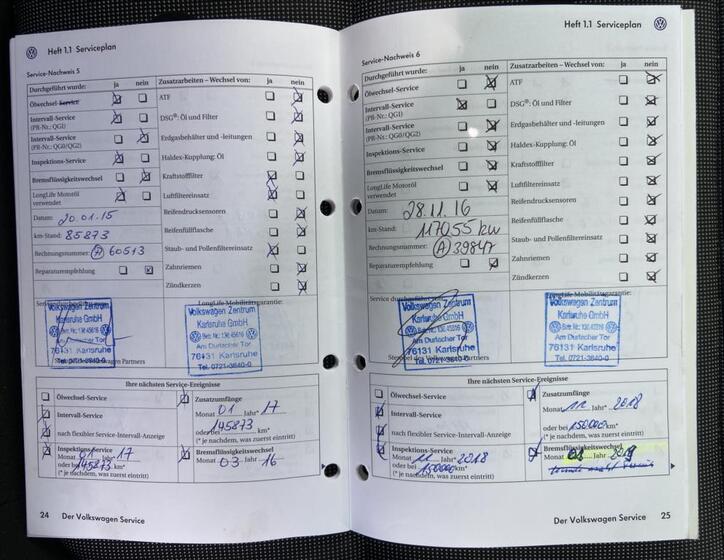 Heft 1.1 Serviceplan
Service-Nachweis 5
Durchgeführt wurde: ja nein
Ölwechsel-Service
Intervall-Service
(PR-Nr.: QG1)
Intervall-Service
(PR-Nr.: QG0/QG2)
Inspektions-Service
Bremsflüssigkeitswechsel
LongLife Motoröl
verwendet
Datum: 20.01.15
km-Stand: 85873
Rechnungsnummer: A 60513
Reparaturempfehlung
Zusatzarbeiten – Wechsel von: ja nein
ATF
DSG®: Öl und Filter
Erdgasbehälter und -leitungen
Haldex-Kupplung: Öl
Kraftstofffilter
Luftfiltereinsatz
Reifendrucksensoren
Reifenfüllflasche
Staub- und Pollenfiltereinsatz
Zahnriemen
Zündkerzen
LongLife Mobilitätsgarantie:
Volkswagen Zentrum
Karlsruhe GmbH
Am Durlacher Tor
76131 Karlsruhe
Tel. 0721-3640-0
Volkswagen Zentrum
Karlsruhe GmbH
Am Durlacher Tor
76131 Karlsruhe
Tel. 0721-3640-0
Ihre nächsten Service-Ereignisse
Ölwechsel-Service
Intervall-Service
nach flexibler Service-Intervall-Anzeige
Inspektions-Service
Monat 01 Jahr 17
oder bei 145873 km*
(* je nachdem, was zuerst eintritt)
Zusatzumfänge
Monat 01 Jahr* 17
oder bei 145873 km*
(* je nachdem, was zuerst eintritt)
Bremsflüssigkeitswechsel
Monat 03 Jahr 16
24 Der Volkswagen Service
Heft 1.1 Serviceplan
Service-Nachweis 6
Durchgeführt wurde: ja nein
Ölwechsel-Service
Intervall-Service
(PR-Nr.: QG1)
Intervall-Service
(PR-Nr.: QG0/QG2)
Inspektions-Service
Bremsflüssigkeitswechsel
LongLife Motoröl
verwendet
Datum: 28.11.16
km-Stand: 117055 km
Rechnungsnummer: A 39847
Reparaturempfehlung
Zusatzarbeiten – Wechsel von: ja nein
ATF
DSG®: Öl und Filter
Erdgasbehälter und -leitungen
Haldex-Kupplung: Öl
Kraftstofffilter
Luftfiltereinsatz
Reifendrucksensoren
Reifenfüllflasche
Staub- und Pollenfiltereinsatz
Zahnriemen
Zündkerzen
Volkswagen Zentrum
Karlsruhe GmbH
Am Durlacher Tor
76131 Karlsruhe
Tel. 0721-3640-0
Volkswagen Zentrum
Karlsruhe GmbH
Am Durlacher Tor
76131 Karlsruhe
Tel. 0721-3640-0
Ihre nächsten Service-Ereignisse
Ölwechsel-Service
Intervall-Service
nach flexibler Service-Intervall-Anzeige
Inspektions-Service
Monat 11 Jahr* 2018
oder bei 150000 km*
(* je nachdem, was zuerst eintritt)
Zusatzumfänge
Monat 11 Jahr* 2018
oder bei 150000 km*
(* je nachdem, was zuerst eintritt)
Bremsflüssigkeitswechsel
Monat 01 Jahr 2019
Der Volkswagen Service 25